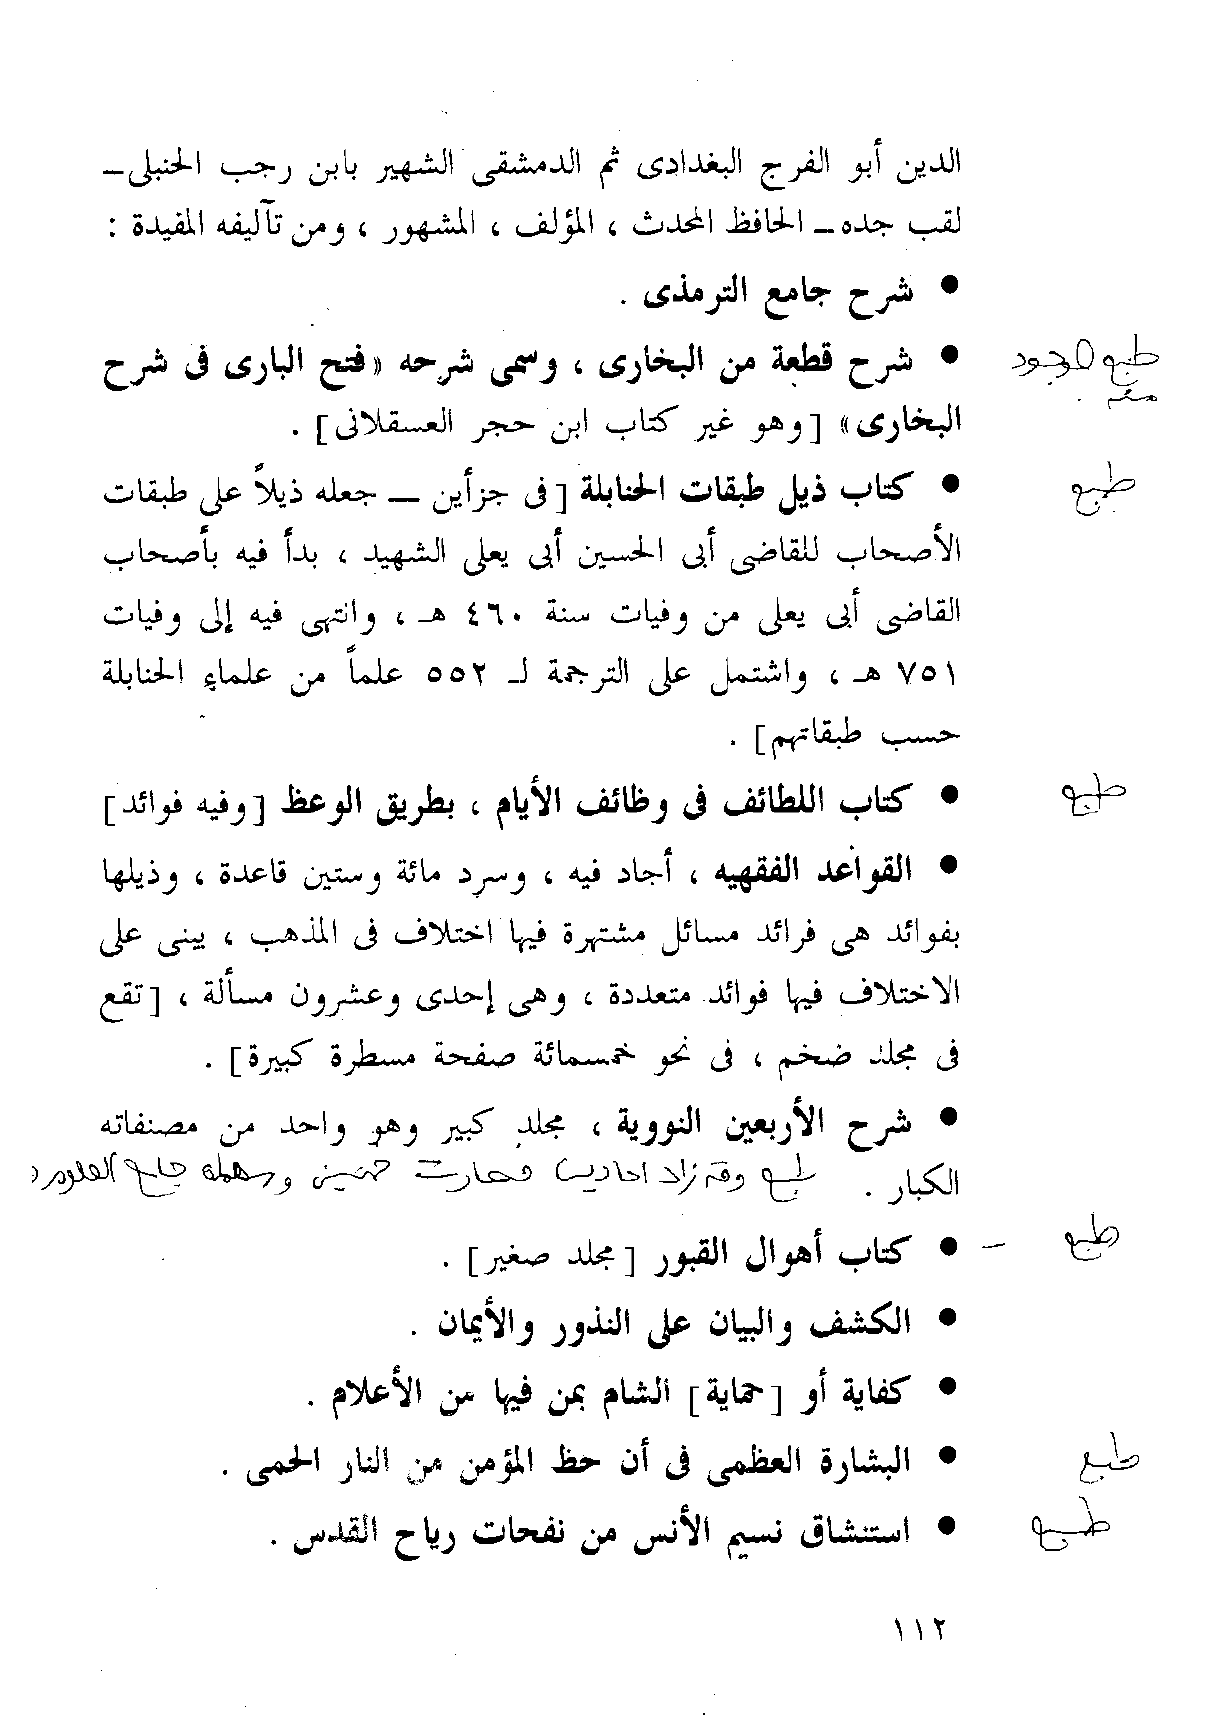 الدين أبو الفرج البغدادى ثم الدمشقى الشهير بابن رجب الحنبلى ــ
لقب جده ــ الحافظ المحدث ، المؤلف ، المشهور ، ومن تآليفه المفيدة :
● شرح جامع الترمذى .
● شرح قطعة من البخارى ، وسمى شرحه «فتح البارى فى شرح
طبع الموجود
منه .
البخارى» [وهو غير كتاب ابن حجر العسقلانى] .
● كتاب ذيل طبقات الحنابلة [فى جزأين ــ جعله ذيلاً على طبقات
طبع
الأصحاب للقاضى أبى الحسين أبى يعلى الشهيد ، بدأ فيه بأصحاب
القاضى أبى يعلى من وفيات سنة ٤٦٠ هـ ، وانتهى فيه إلى وفيات
٧٥١ هـ ، واشتمل على الترجمة لـ ٥٥٢ علماً من علماء الحنابلة
حسب طبقاتهم] .
● كتاب اللطائف فى وظائف الأيام ، بطريق الوعظ [وفيه فوائد]
طبع
● القواعد الفقهيه ، أجاد فيه ، وسرد مائة وستين قاعدة ، وذيلها
بفوائد هى فرائد مسائل مشتهرة فيها اختلاف فى المذهب ، يبنى على
الاختلاف فيها فوائد متعددة ، وهى إحدى وعشرون مسألة ، [تقع
فى مجلد ضخم ، فى نحو خمسمائة صفحة مسطرة كبيرة] .
● شرح الأربعين النووية ، مجلد كبير وهو واحد من مصنفاته
الكبار . طبع وقد زاد احاديث فصارت خمسين وسماه جامع العلوم و
● كتاب أهوال القبور [مجلد صغير] .
– طبع
● الكشف والبيان على النذور والأيمان .
● كفاية أو [حماية] الشام بمن فيها من الأعلام .
● البشارة العظمى فى أن حظ المؤمن من النار الحمى .
طبع
● استنشاق نسيم الأنس من نفحات رياح القدس .
طبع
١١٢